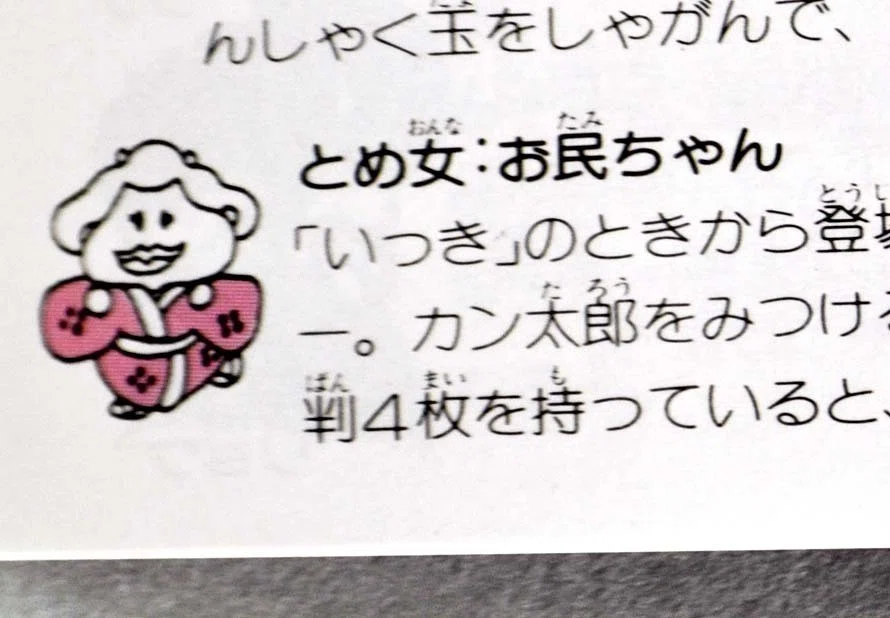 んしゃく玉をしゃがんで、
とめ女：お民ちゃん
「いっき」のときから登場
ー。カン太郎をみつける
判4枚を持っていると、